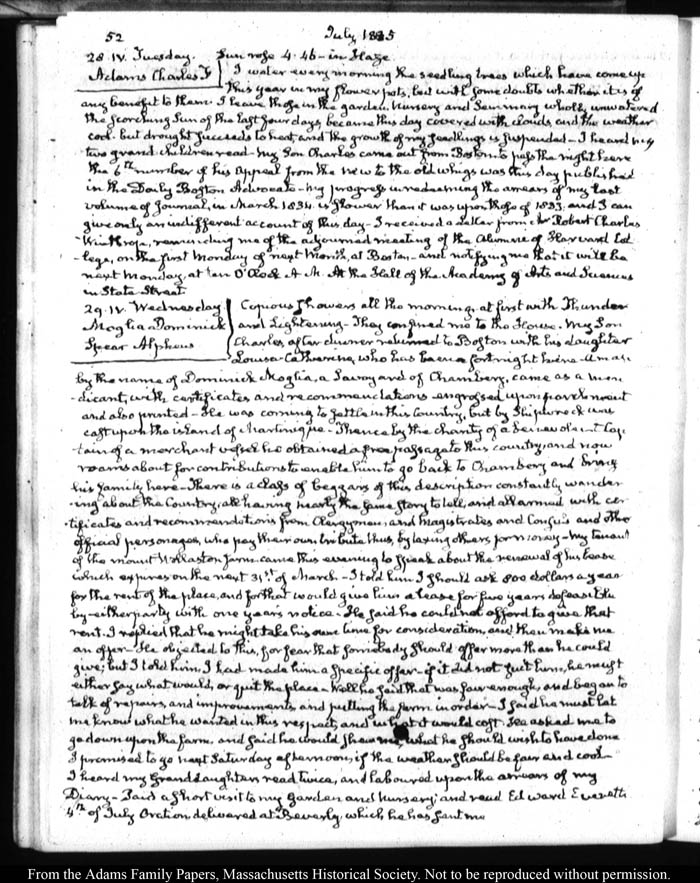 52 July 1835
28. IV. Tuesday. Sun rose 4. 46 - in Haze.
Adams Charles F I water every morning the seedling trees which have come up
this year in my flower pots, but with some doubts whether it is of
any benefit to them. I leave those in the garden, Nursery and Seminary wholly unwatered
the scorching Sun of the last four days, became this day covered with clouds and the weather
cool. but drought succeeds to heat, and the growth of my seedlings is suspended - I heard my
two grand children read - My Son Charles came out from Boston to pass the night here
the 6th. number of his Appeal from the new to the old whigs was this day published
in the Daily Boston Advocate - My progress in redeeming the arrears of my last
volume of Journal, in March 1834 is slower than it was upon those of 1833, and I can
give only an indifferent account of this day - I received a Letter from Mr Robert Charles
Winthrop, reminding me of the adjourned meeting of the Alumni of Harvard Col
-lege, on the first Monday of next Month, at Boston - and notifying me that it will be
next Monday, at ten O'Clock A. M. At the Hall of the Academy of Arts and Sciences
in State Street
29. IV. Wednesday Copious showers all the morning, at first with Thunder
Moglia Dominick and Lightening - They confined me to the House. My Son
Spear Alpheus Charles, after dinner returned to Boston with his daughter
Louisa-Catherine, who has been a fortnight here - A man
by the name of Dominick Moglia, a Savoyard of Chambery, came as a men
-dicant, with certificates and recommendations engrossed upon parchment
and also printed - He was coming to settle in this Country, but by Shipwreck was
cast upon the island of Martinique - Thence by the charity of a benevolent Cap
-tain of a merchant vessel he obtained a free passage to this country, and now
roams about for contributions to enable him to go back to Chambery and bring
his family here - There is a class of beggars of this description constantly wander
-ing about the Country, all having nearly the same story to tell, and all armed with cer
-tificates and recommendations from Clergymen, and Magistrates and Consuls and other
official personages, who pay their own tribute thus, by taxing others for money - My tenant
of the mount Wollaston farm came this evening to speak about the renewal of his lease
which expires on the next 31st. of March - I told him I should ask 800 dollars a year
for the rent of the place, and for that would give him a lease for five years defeasible
by either party with one years notice - He said he could not afford to give that
rent. I replied that he might take his own time for consideration, and then make me
an offer - He objected to this, for fear that somebody should offer more than he could
give; but I told him, I had made him a specific offer - if it did not suit him, he must
either say what would, or quit the place - Well he said that was fair enough, and began to
talk of repairs, and improvements, and putting the farm in order - I said he must let
me know what he wanted in this respect, and what it would cost. He asked me to
go down upon the farm, and said he would shew me, what he should wish to have done
I promised to go next Saturday afternoon, if the weather should be fair and cool -
I heard my Grand daughters read twice, and laboured upon the arrears of my
Diary - Paid a short visit to my Garden and Nursery; and read Edward Everett's
4th. of July Oration, delivered at Beverly, which he has sent me
From the Adams Family Papers, Massachusetts Historical Society. Not to be reproduced without permission.